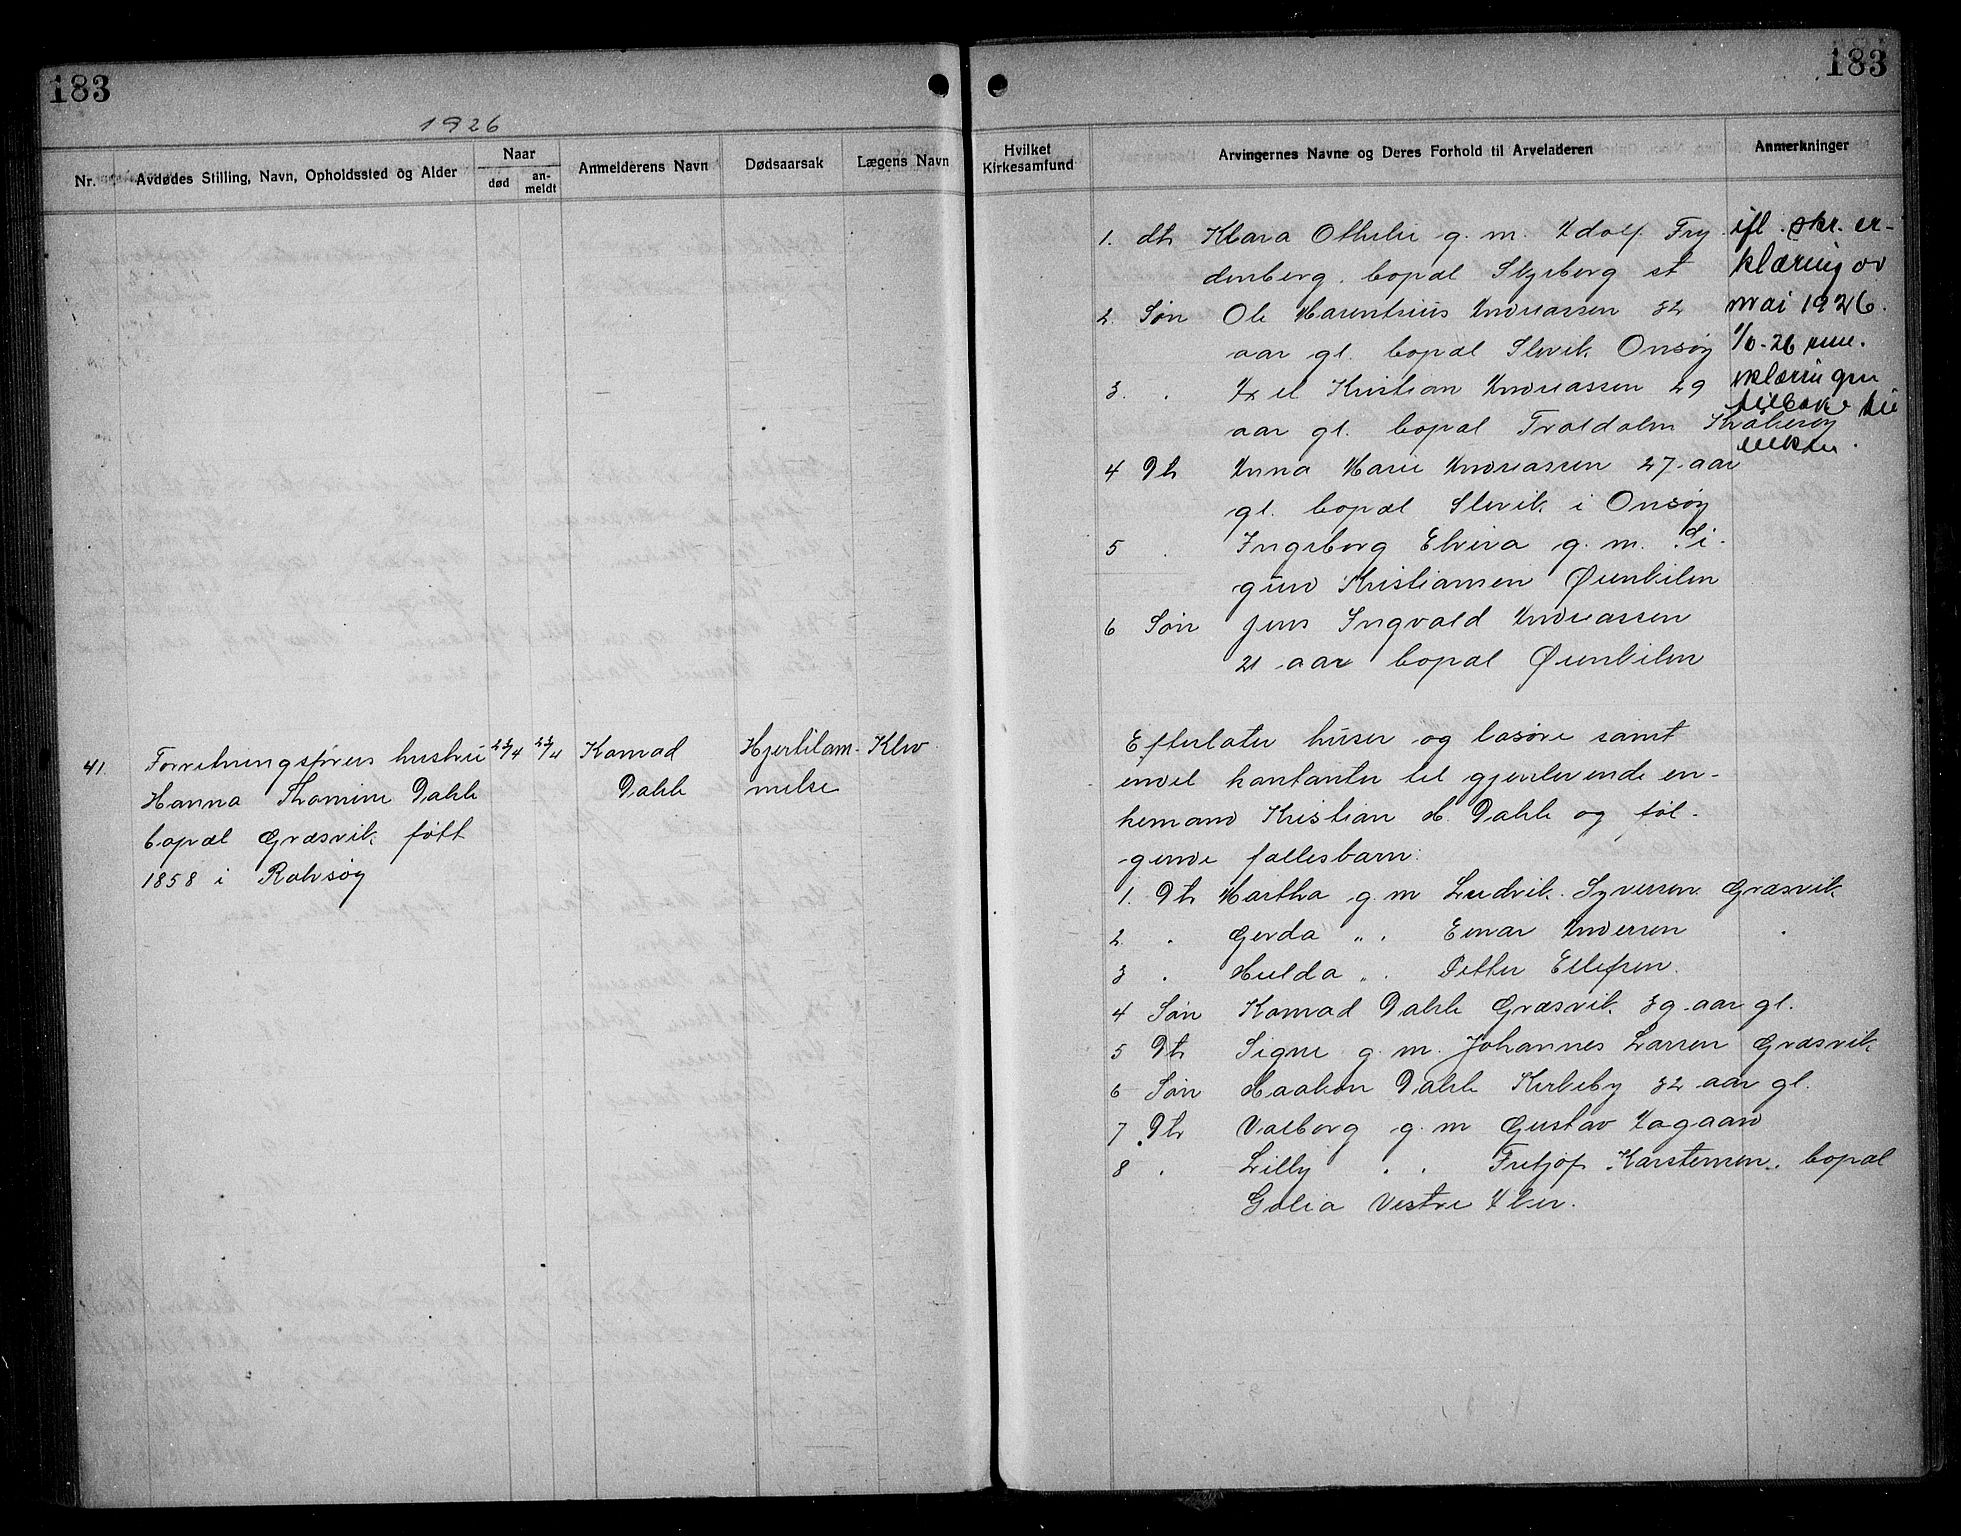 183
1926
Nr.
Avdødes Stilling, Navn, Opholdssted og Alder
Naar
død
an-
meldt
Anmelderens Navn
Dødsaarsak
Lægens Navn
41.
Forretningsførers hustru
Hanna Thomine Dahle
bopæl Græsvik født
1858 i Rolvsøy
23/4
23/4
Konrad
Dahle
Hjertelam-
melse
183
Hvilket
Kirkesamfund
Arvingernes Navne og Deres Forhold til Arveladeren
Anmerkninger
1. dtr Klara Othelie g. m. Adolf Fry-
denberg. bopæl Slysberg st
2. Søn Ole Marentsius Andreassen 32
aar gl. bopæl Slevik Onsøy
3. " Axel Kristian Andreassen 29
aar gl. bopæl Troldalen Kråkerøy
4 Dtr Anna Marie Andreassen 27 aar
gl. bopæl Slevik i Onsøy
5 " Ingeborg Elvira g. m. Si-
gurd Kristiansen Øienkilen
6 Søn Jens Ingvald Andreassen
21 aar bopæl Øienkilen
ifl. skr. er-
klæring av
mai 1926.
Efterlater huser og løsøre samt
endel kontanter til gjenlevende en-
kemand Kristian H. Dahle og føl-
gende fællesbarn:
1. Dtr Martha g. m Ludvik Syversen Græsvik
2. " Gerda " " Einar Andersen "
3 " Hulda " " Petter Ellefsen.
4 Søn Konrad Dahle Græsvik 39 aar gl.
5 Dtr Signe g. m. Johannes Larsen Græsvik
6 Søn Haakon Dahle Kirkeby 32 aar gl.
7 Dtr Valborg g. m Gustav Aagaard
8 " Lilly " " Fritjof Karstensen. bopæl
Golia Vestre Aker.